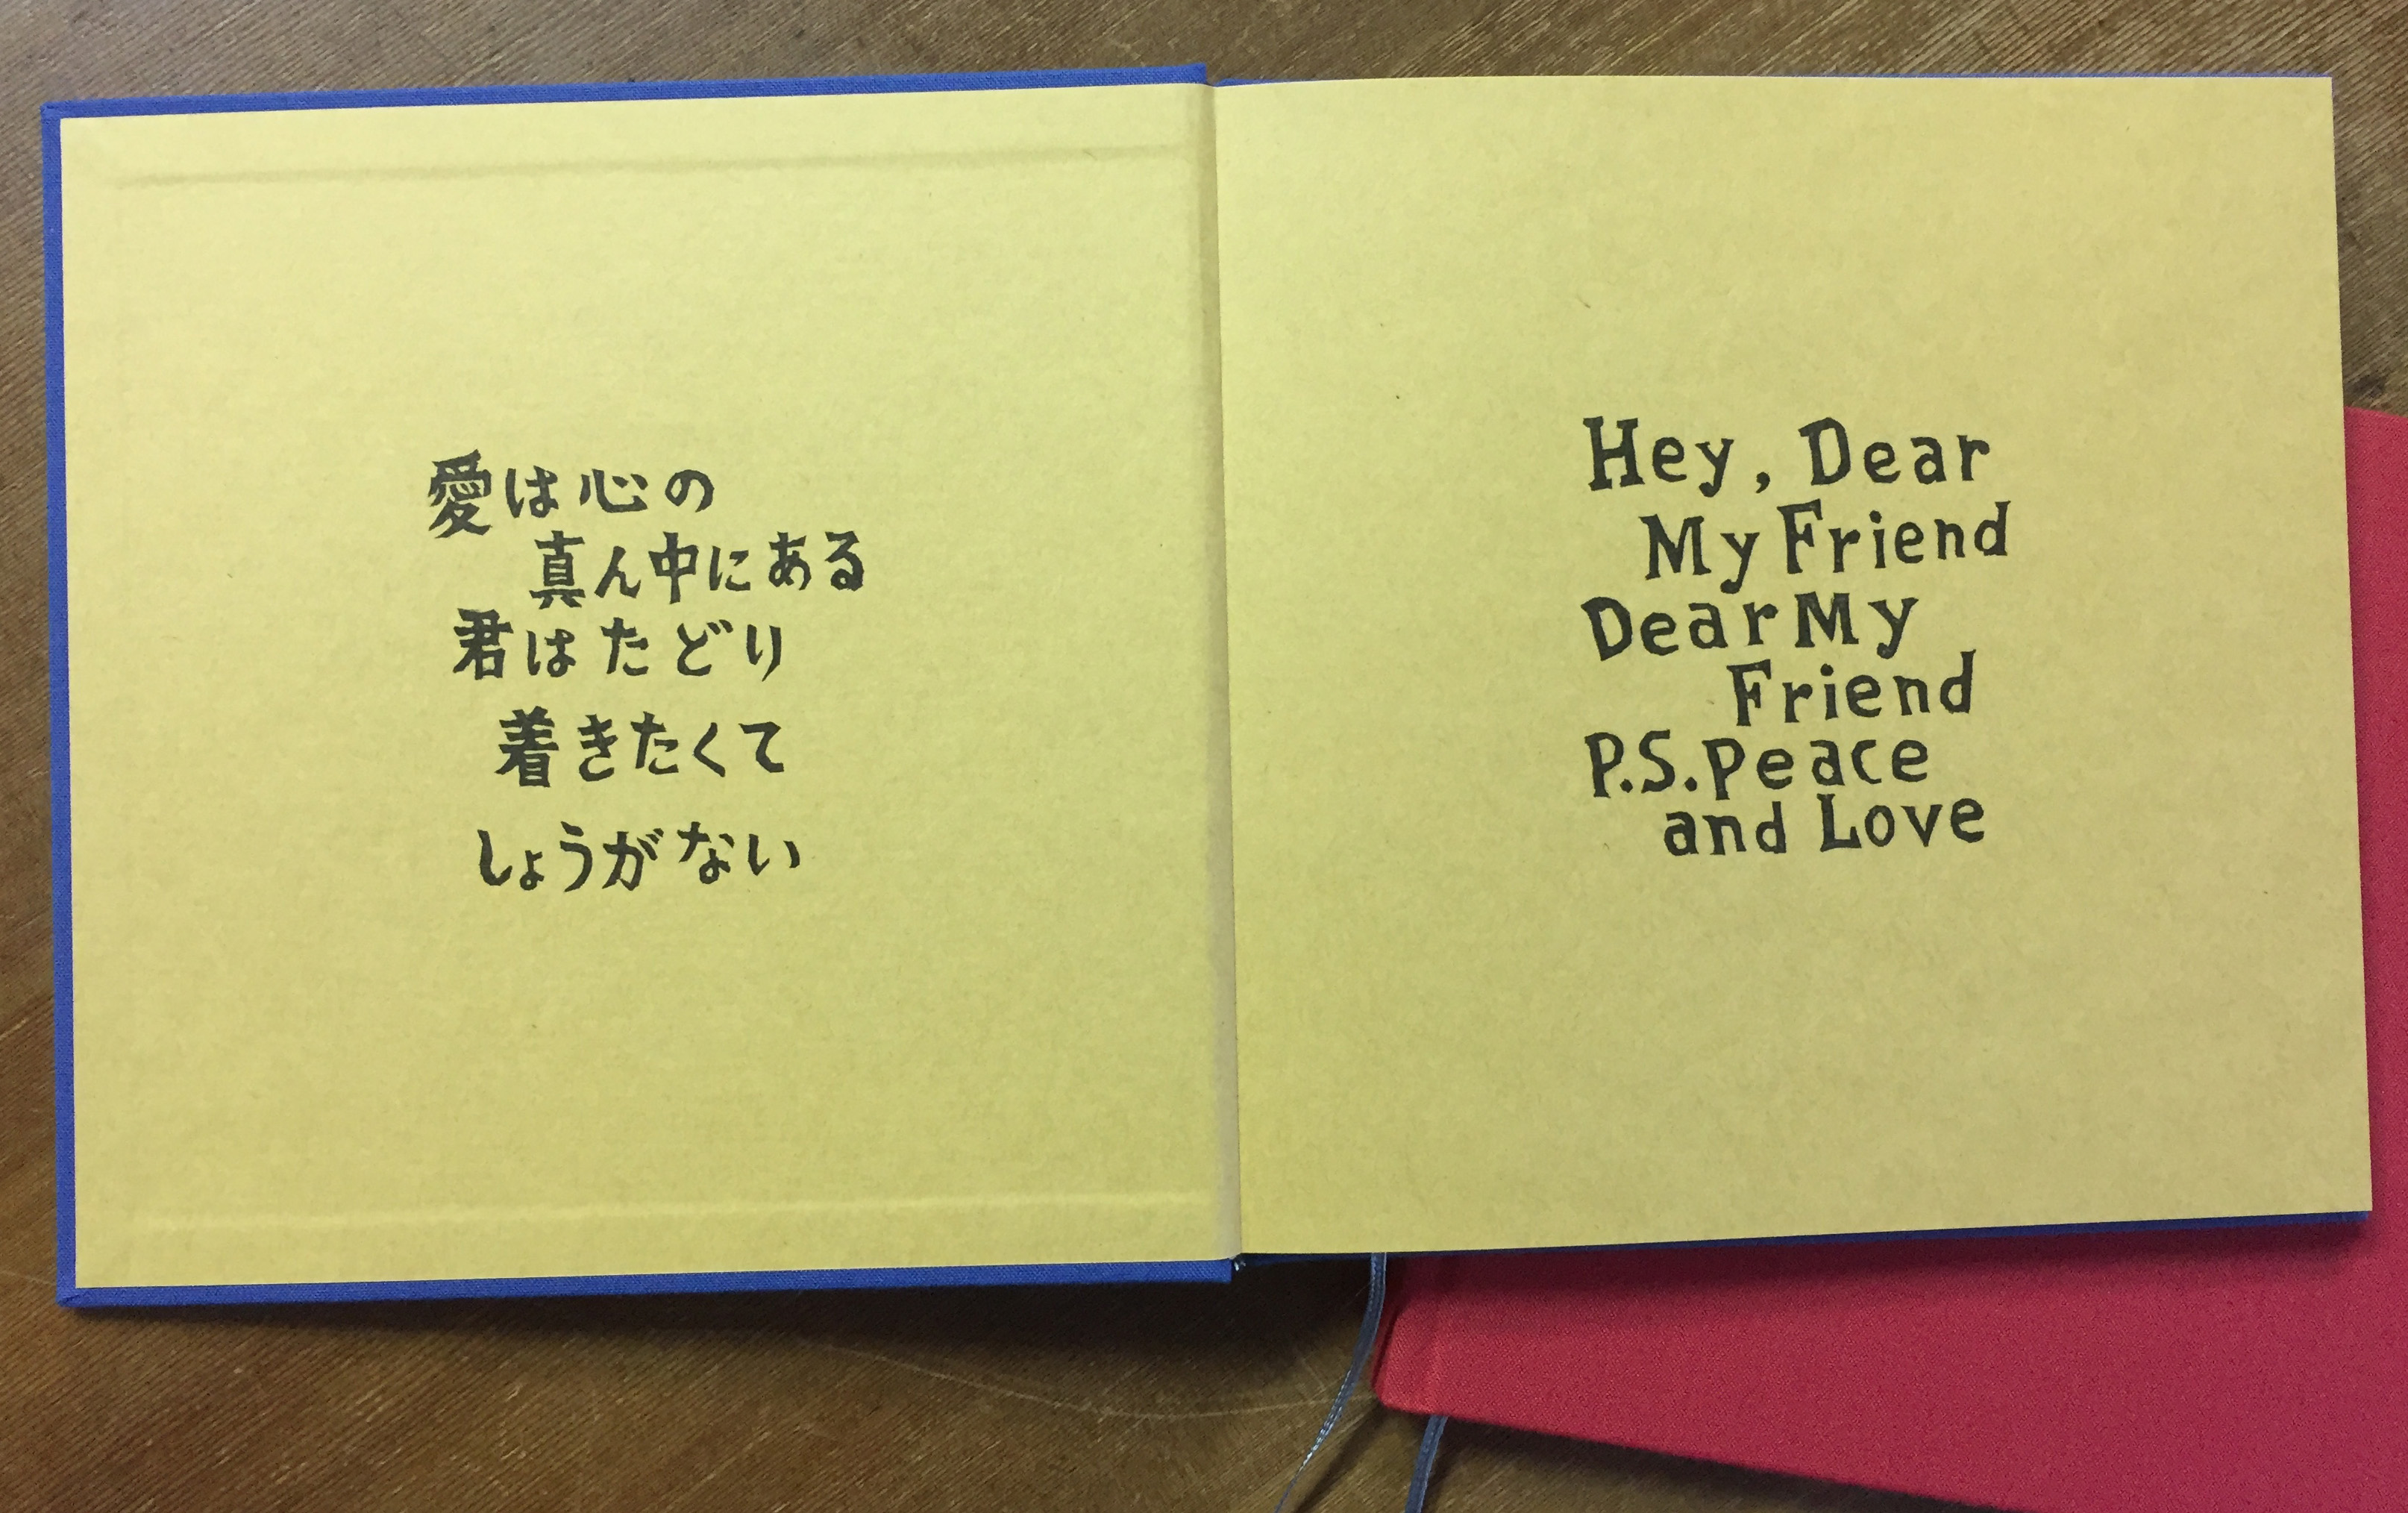 愛は心の
真ん中にある
君はたどり
着きたくて
しょうがない
Hey, Dear
My Friend
Dear My
Friend
P.S. Peace
and Love